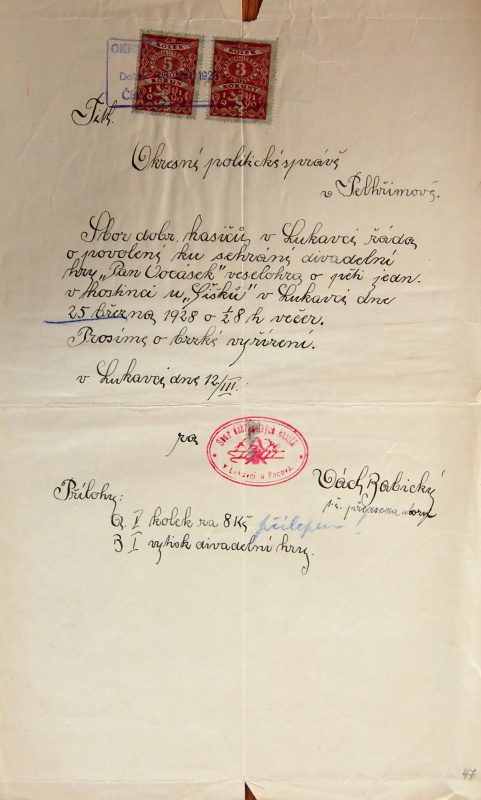 ČR
KOLEK
5
KORUN
ČR
KOLEK
3
KORUNY
Tit.
Okresné politické správě
v Pelhřimově.
Sbor dobr. hasičů v Lukavci žádá
o povolení ku sehrání divadelní
hry „Pan Vocásek" veselohra o pěti jedn.
v hostinci u „Šišků" v Lukavci dne
25 března 1928 o ½8 h večer.
Prosíme o brzké vyřízení.
v Lukavci dne 12/III.
za
Sbor dobrovolných hasičů
v Lukavci u Pacova
Vách. Babický
t. č.
Přílohy:
A. I kolek za 8 Kč přilepen!
B I výtisk divadelní hry.
47